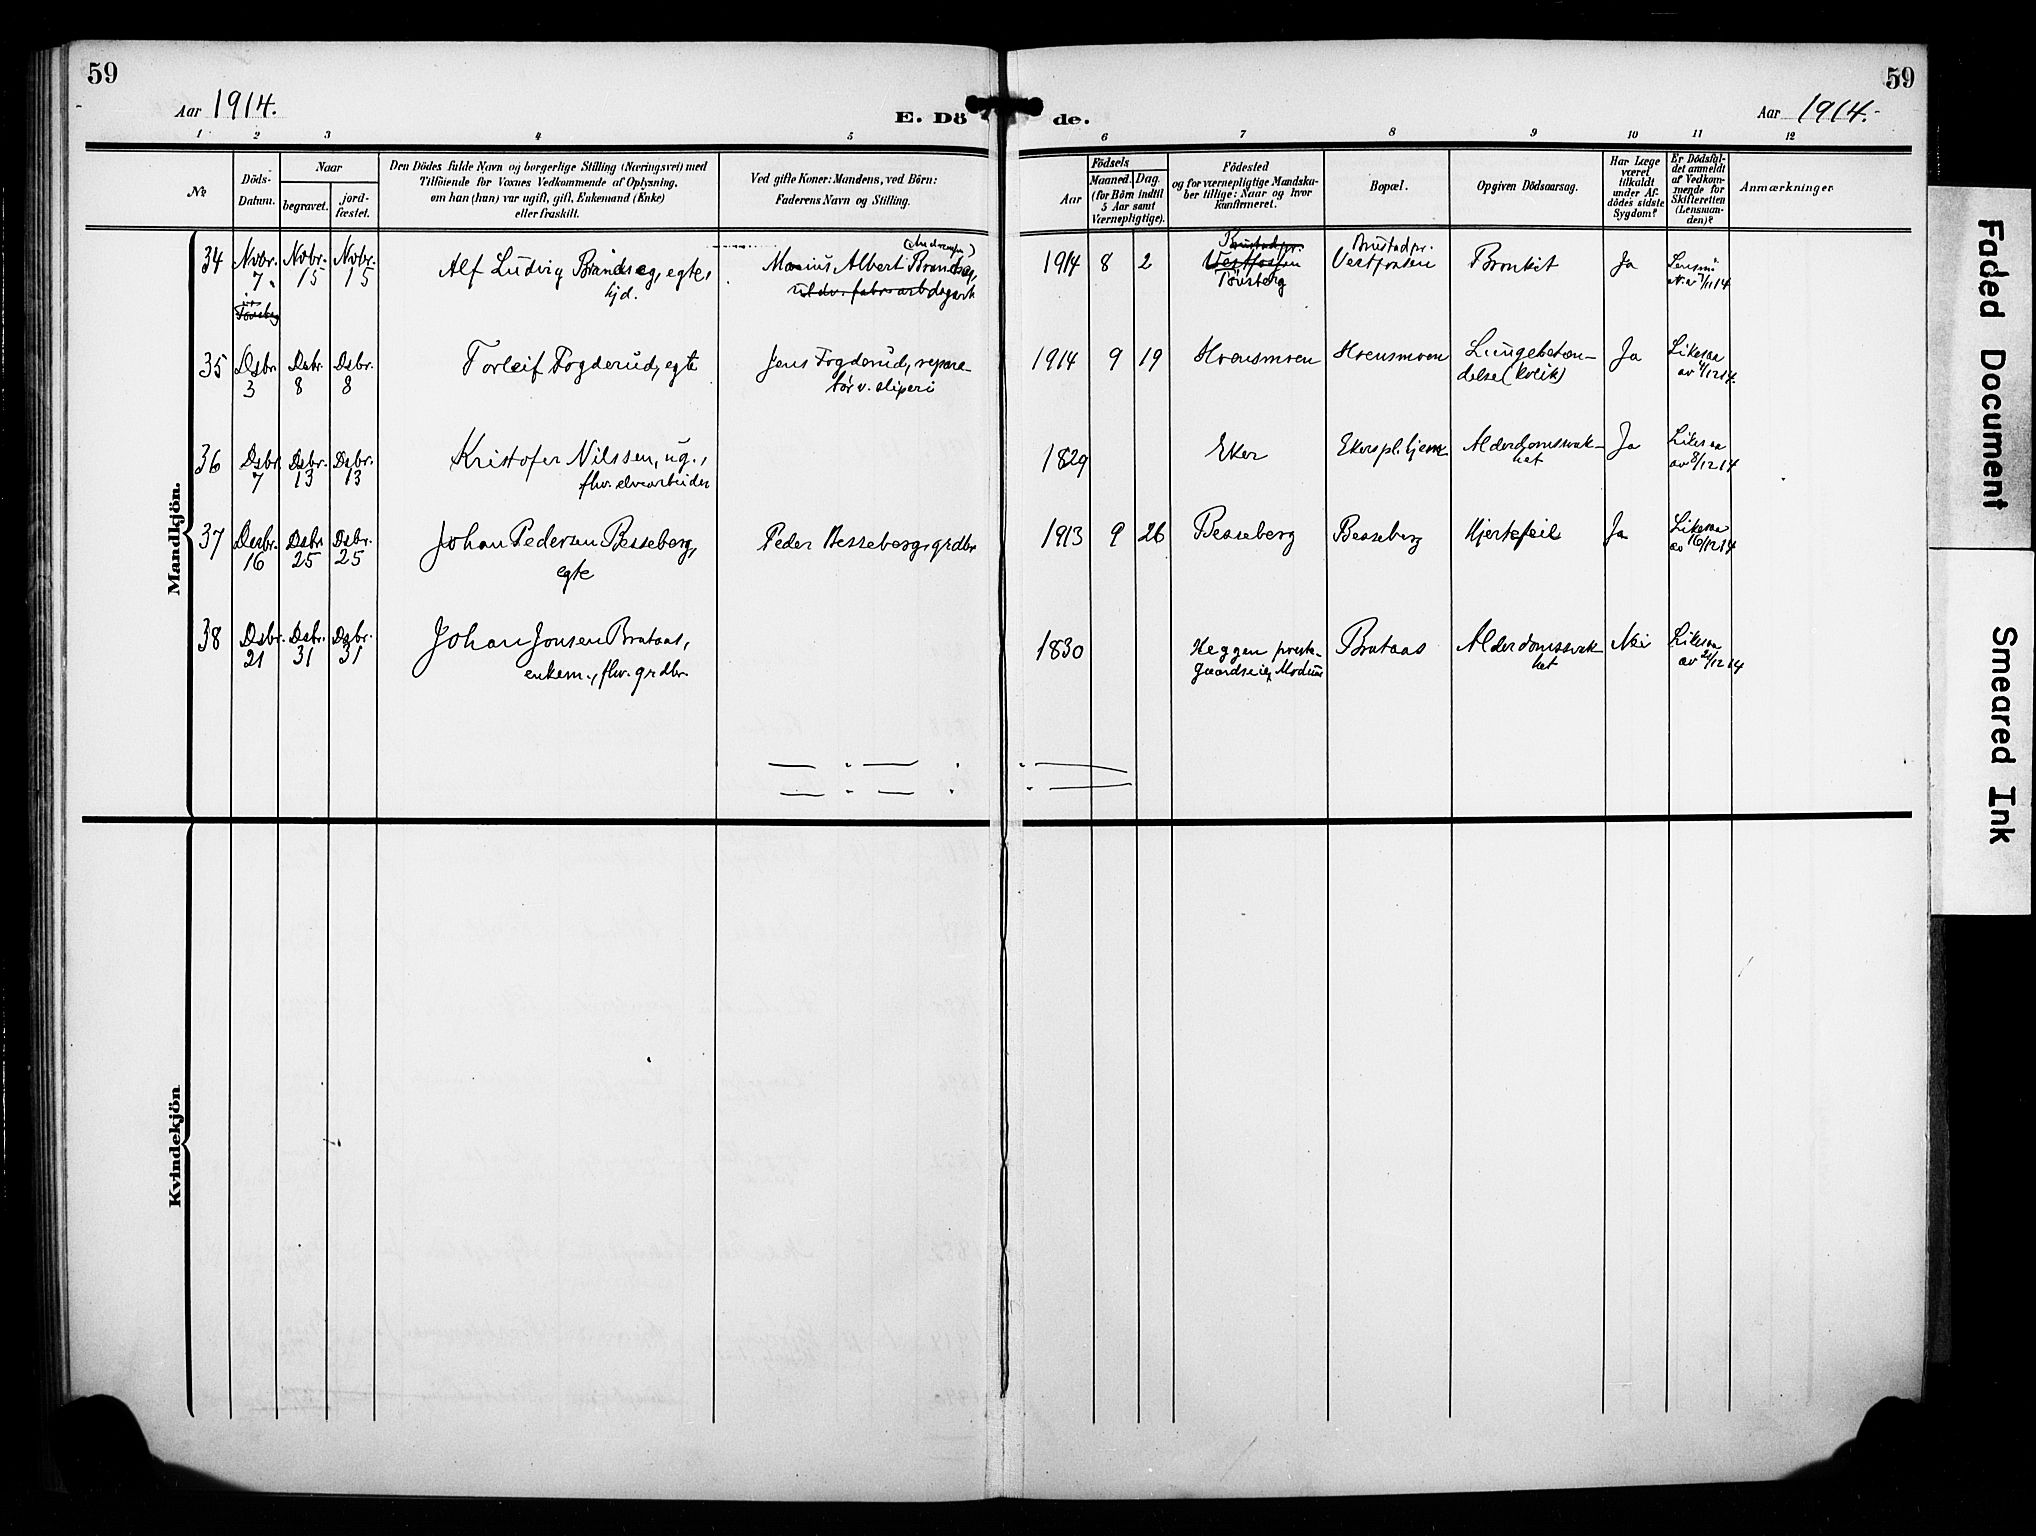 59
59
Aar 1914.
E. Dö de.
Aar 1914.
1 2 3 4 5 6 7 8 9 10 11 12
No
Döds-
Datum.
Naar
begravet.
jord-
fæstet.
Den Dödes fulde Navn og borgerlige Stilling (Næringsvei) med
Tilföiende for Voxnes Vedkommende af Oplysning,
om han (hun) var ugift, gift, Enkemand (Enke)
eller fraskilt.
Ved gifte Koner: Mandens, ved Börn:
Faderens Navn og Stilling.
Födsels
Aar
Maaned. Dag.
(for Börn indtil
5 Aar samt
Værnepligtige).
Födested
og for værnepligtige Mandska-
ber tillige: Naar og hvor
konfirmeret.
Bopæl.
Opgiven Dödsaarsag.
Har Læge
været
tilkaldt
under Af-
dödes sidste
Sygdom?
Er Dödsfal-
det anmeldt
af Vedkom-
mende for
Skifteretten
(Lensman-
den)?
Anmærkninger
Mandkjön.
34
Nvbr.
7
Nvbr.
15
Nvbr.
15
Alf Ludvig Brandseg, egte,
Marius Albert Brandseg,
1914 8 2
Brustad pr.
Vestfossen
Tönsberg
Brustad pr.
Vestfossen
Bronkit
Ja
35
Dsbr.
3
Dsbr.
8
Dsbr.
8
Torleif Fogderud, egte
Jens Fogderud, repara-
tör v. sliperi
1914 9 19
Hoensmoen
Hoensmoen
Lungebeten-
delse (kolik)
Ja
Likesaa
av 4/12 14.
36
Dsbr.
7
Dsbr.
13
Dsbr.
13
Kristofer Nilssen, ug.,
fhv. elvearbeider
1829
Eker
Ekers pl. hjem
Alderdomssvak-
het
Ja
Likesaa
av 8/12 14
37
Desbr.
16
Dsbr.
25
Dsbr.
25
Johan Pedersen Besseberg,
egte
Peder Besseberg, grdbr.
1913 9 26
Besseberg
Besseberg
Hjertefeil
Ja
Likesaa
av 16/12 14
38
Dsbr.
21
Dsbr.
31
Dsbr.
31
Johan Jonsen Brataas,
enkem., fhv. grdbr.
1830
Heggen preste-
gaardseie, Modum
Brataas
Alderdomssvak-
het
Nei
Likesaa
av 21/12 14
Kvindekjön
Faded Document
Smeared Ink